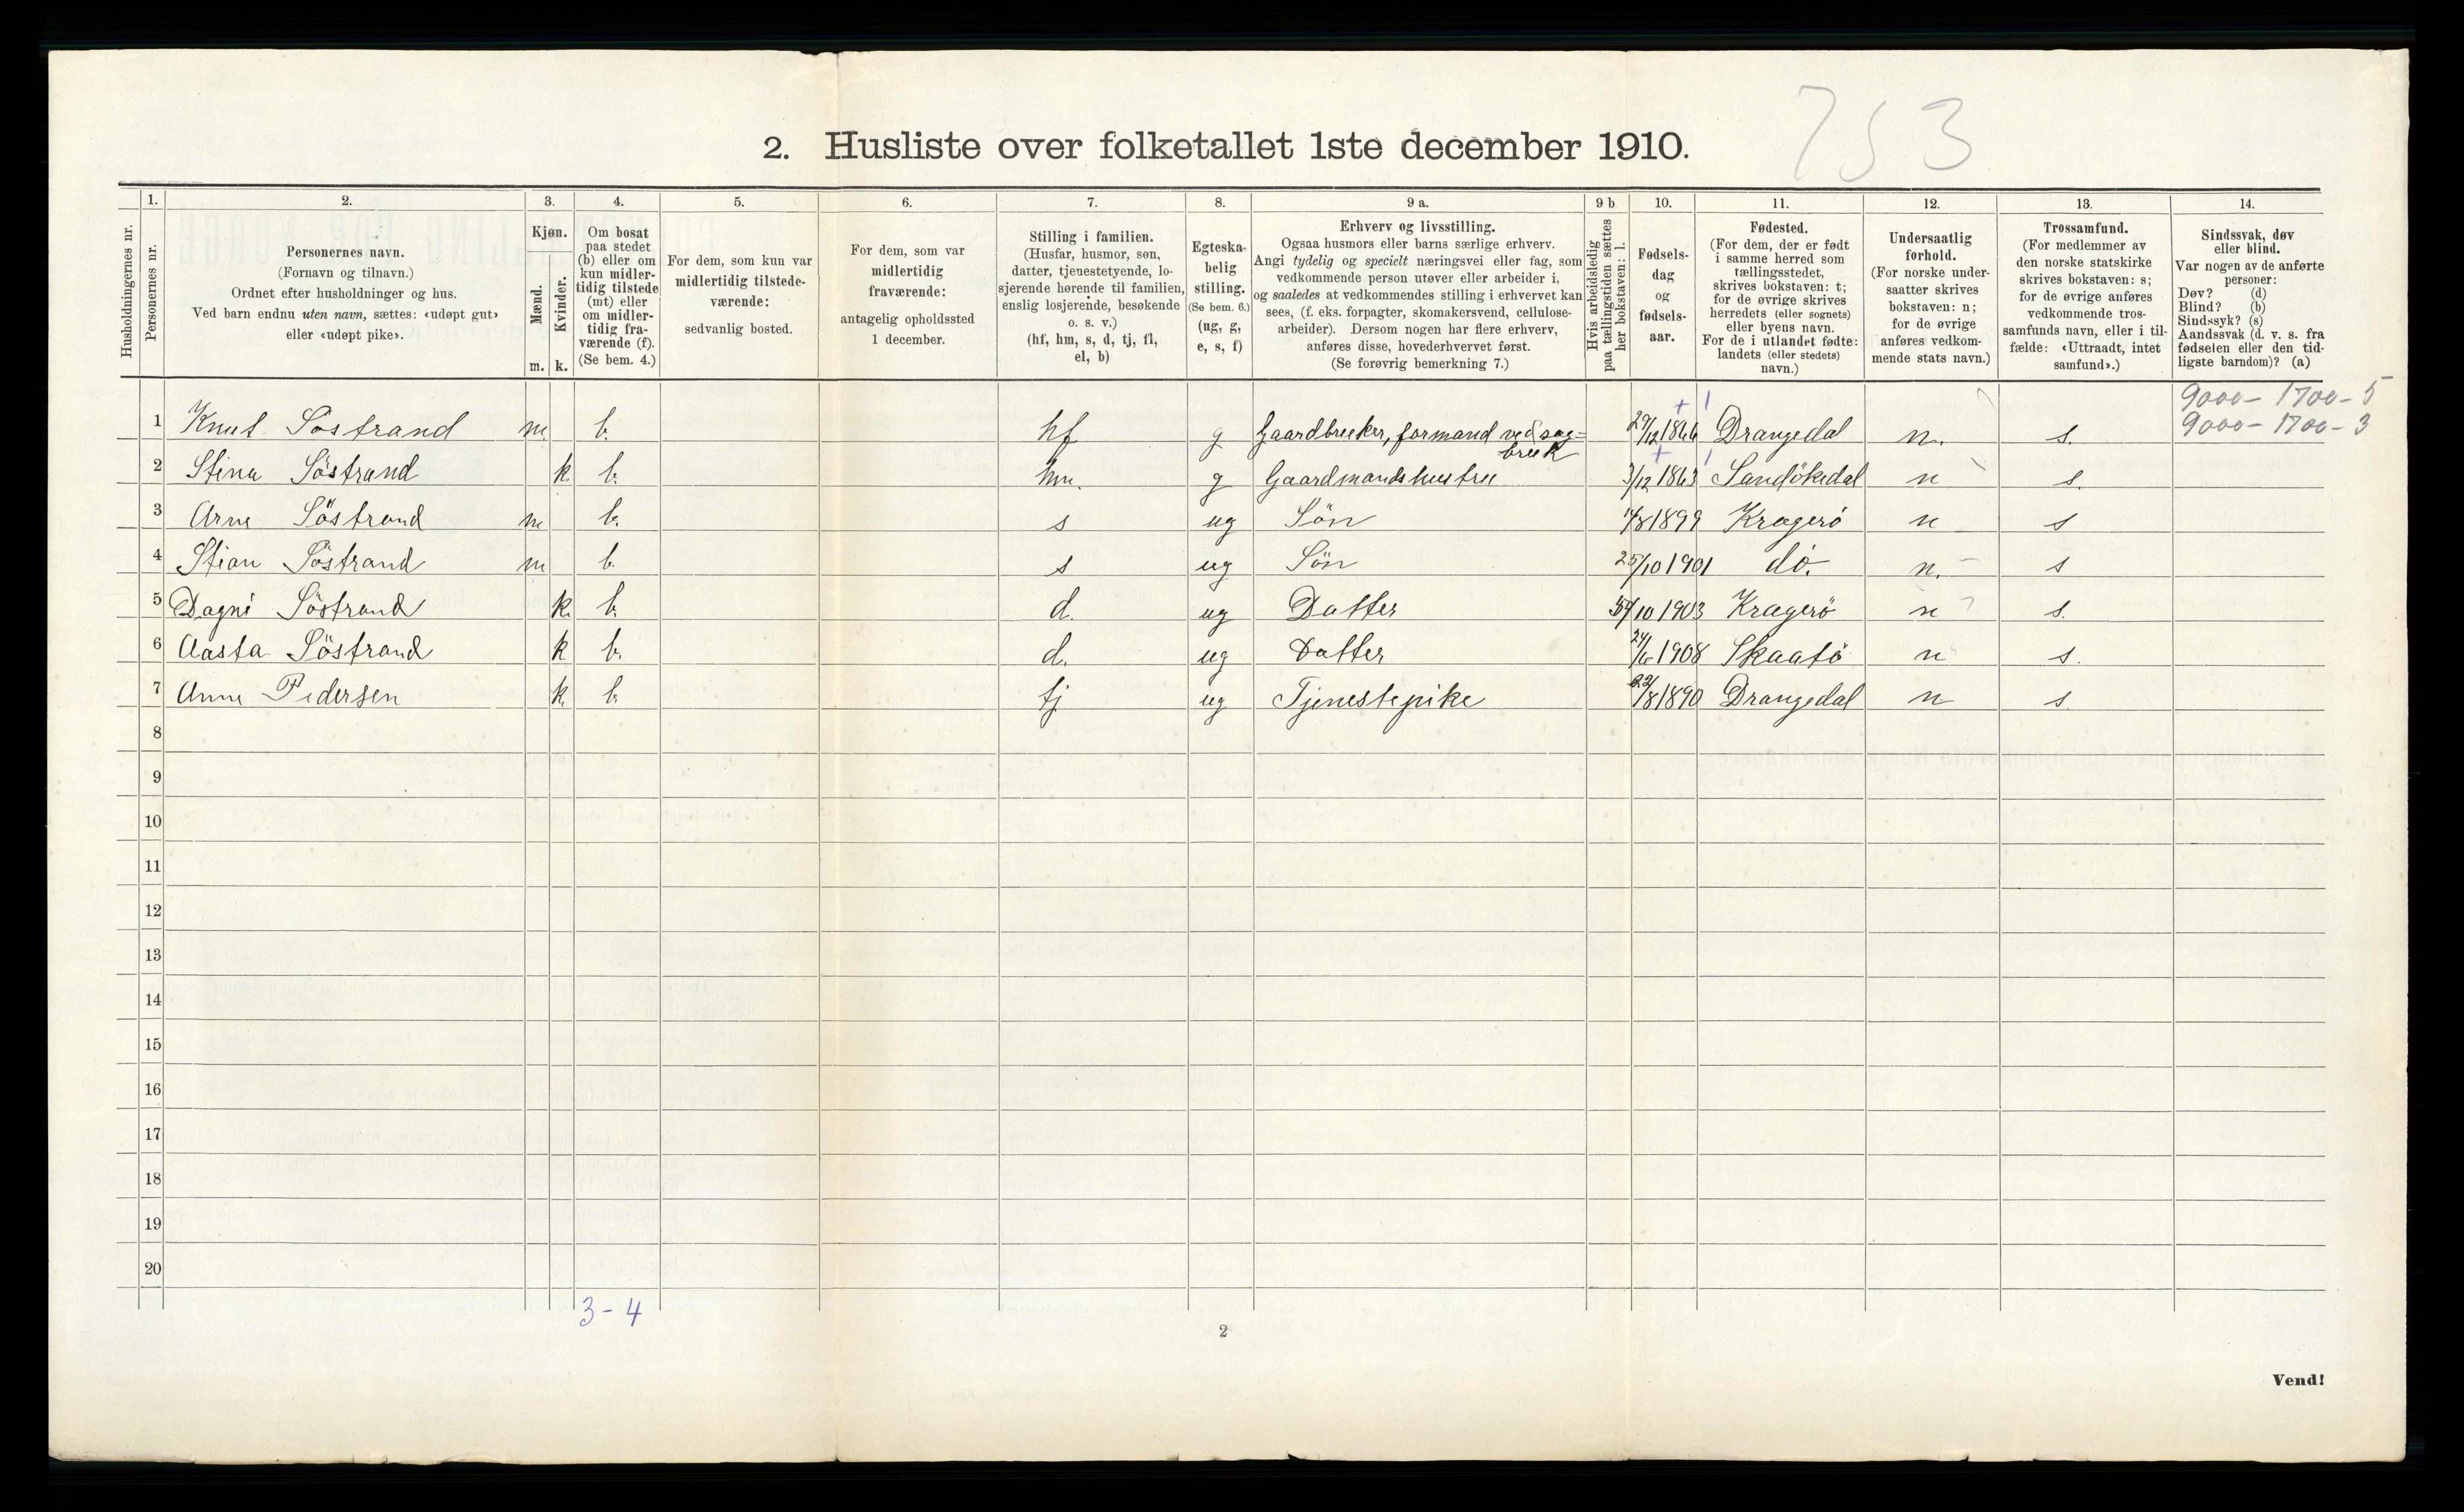 753
2. Husliste over folketallet 1ste december 1910.
Husholdningernes nr.
1.
Personernes nr.
2.
Personernes navn.
(Fornavn og tilnavn.)
Ordnet efter husholdninger og hus.
Ved barn endnu uten navn, sættes: «udøpt gut»
eller «udøpt pike».
3.
Kjøn.
Mænd.
m.
Kvinder.
k.
4.
Om bosat
paa stedet
(b) eller om
kun midler-
tidig tilstede
(mt) eller
om midler-
tidig fra-
værende (f).
(Se bem. 4.)
5.
For dem, som kun var
midlertidig tilstede-
værende:
sedvanlig bosted.
6.
For dem, som var
midlertidig
fraværende:
antagelig opholdssted
1 december.
7.
Stilling i familien.
(Husfar, husmor, søn,
datter, tjenestetyende, lo-
sjerende hørende til familien,
enslig losjerende, besøkende
o. s. v.)
(hf, hm, s, d, tj, fl,
el, b)
8.
Egteska-
belig
stilling.
(Se bem. 6.)
(ug, g,
e, s, f)
9 a.
Erhverv og livsstilling.
Ogsaa husmors eller barns særlige erhverv.
Angi tydelig og specielt næringsvei eller fag, som
vedkommende person utøver eller arbeider i,
og saaledes at vedkommendes stilling i erhvervet kan
sees, (f. eks. forpagter, skomakersvend, cellulose-
arbeider). Dersom nogen har flere erhverv,
anføres disse, hovederhvervet først.
(Se forøvrig bemerkning 7.)
9 b
Hvis arbeidsledig
paa tællingstiden sættes
her bokstaven: l.
10.
Fødsels-
dag
og
fødsels-
aar.
11.
Fødested.
(For dem, der er født
i samme herred som
tællingsstedet,
skrives bokstaven: t;
for de øvrige skrives
herredets (eller sognets)
eller byens navn.
For de i utlandet fødte:
landets (eller stedets)
navn.)
12.
Undersaatlig
forhold.
(For norske under-
saatter skrives
bokstaven: n;
for de øvrige
anføres vedkom-
mende stats navn.)
13.
Trossamfund.
(For medlemmer av
den norske statskirke
skrives bokstaven: s;
for de øvrige anføres
vedkommende tros-
samfunds navn, eller i til-
fælde: «Uttraadt, intet
samfund».)
14.
Sindssvak, døv
eller blind.
Var nogen av de anførte
personer:
Døv? (d)
Blind? (b)
Sindssyk? (s)
Aandssvak (d. v. s. fra
fødselen eller den tid-
ligste barndom)? (a)
9000 - 1700 - 5
9000 - 1700 - 3
1 Knut Söstrand m. b. hf g Gaardbruker, formand ved sag-
bruk 27/12 1866 Drangedal n. s.
2 Stina Söstrand k b. hm. g Gaardmandshustru 3/12 1863 Sandökedal n s.
3 Arne Söstrand m b. s ug Sön 1899 Kragerö n s
4 Stian Söstrand m b. s ug Sön 25/10 1901 do. n. s
5 Dagni Söstrand k. b. d. ug Datter 10 1903 Kragerö n s.
6 Aasta Söstrand k b. d. ug Datter 1908 Skaatö n s.
7 Anne Pedersen k. b. tj ug Tjenestepike 22/8 1890 Drangedal n s.
8
9
10
11
12
13
14
15
16
17
18
19
20
3 - 4
2
Vend!